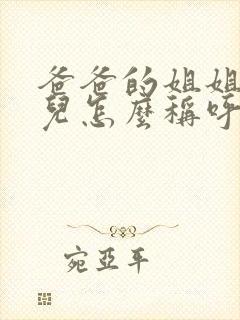 爸爸的姐姐
兒怎麼稱呼
宛亞平